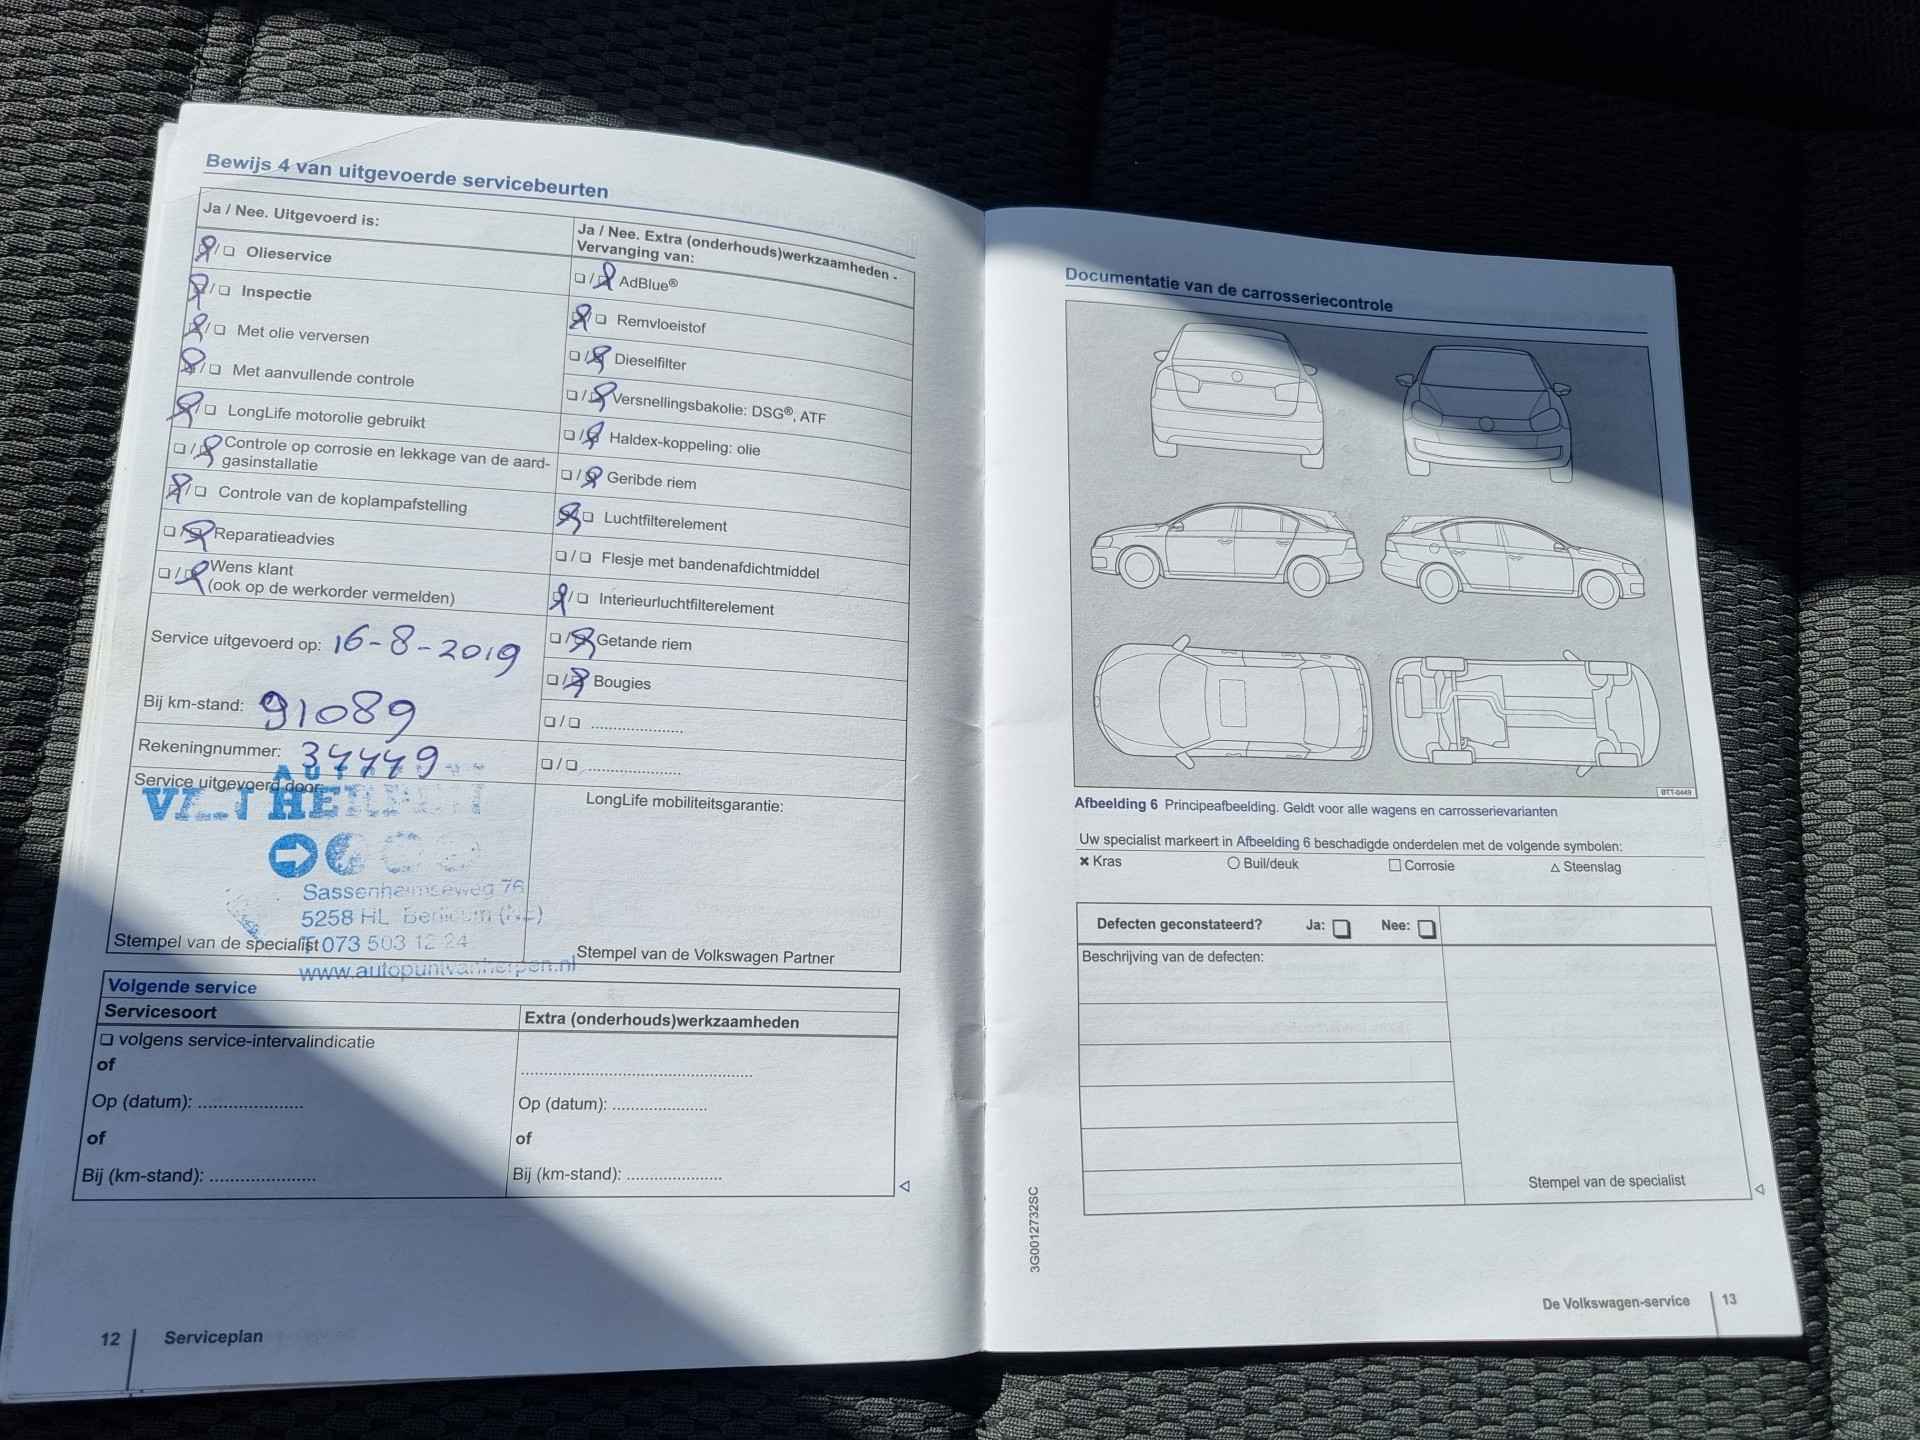 Bewijs 4 van uitgevoerde servicebeurten
Ja / Nee. Uitgevoerd is:
Olieservice
Inspectie
Met olie verversen
Met aanvullende controle
LongLife motorolie gebruikt
Controle op corrosie en lekkage van de aard-
gasinstallatie
Controle van de koplampafstelling
Reparatieadvies
Wens klant
(ook op de werkorder vermelden)
Service uitgevoerd op: 16-8-2019
Bij km-stand: 91089
Rekeningnummer:
Service uitgevoerd door:
Sassenheimseweg 76
5258 HL Berlicum (NL)
Stempel van de specialist
T 073 503 12 24
www.autopuntvanherpen.nl
Ja / Nee. Extra (onderhouds)werkzaamheden -
Vervanging van:
AdBlue®
Remvloeistof
Dieselfilter
Versnellingsbakolie: DSG®, ATF
Haldex-koppeling: olie
Geribde riem
Luchtfilterelement
Flesje met bandenafdichtmiddel
Interieurluchtfilterelement
Getande riem
Bougies
LongLife mobiliteitsgarantie:
Stempel van de Volkswagen Partner
Volgende service
Servicesoort
volgens service-intervalindicatie
of
Op (datum): ....................
of
Bij (km-stand): ....................
Extra (onderhouds)werkzaamheden
Op (datum): ....................
of
Bij (km-stand): ....................
12 Serviceplan
Documentatie van de carrosseriecontrole
BTT-0449
Afbeelding 6 Principeafbeelding. Geldt voor alle wagens en carrosserievarianten
Uw specialist markeert in Afbeelding 6 beschadigde onderdelen met de volgende symbolen:
Kras Buil/deuk Corrosie Steenslag
Defecten geconstateerd? Ja: Nee:
Beschrijving van de defecten:
Stempel van de specialist
3G0012732SC
De Volkswagen-service 13